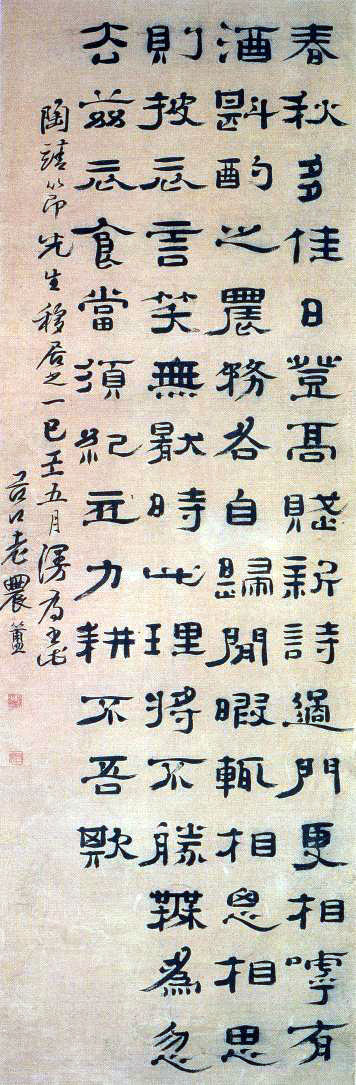 春秋多佳日登高賦新詩過門更相嘑有
酒斟酌之農務各自歸閒暇輒相思相思
則披衣言笑無厭時此理將不勝爲忽
去茲衣食當須紀力耕不吾欺
陶靖節先生移居之一五月漫為
谷口老農簠